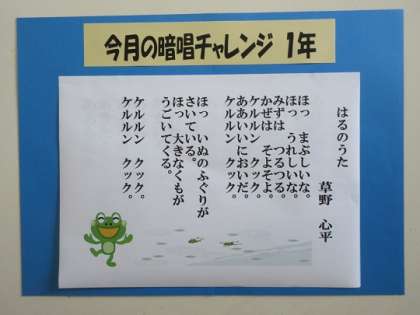 今月の暗唱チャレンジ 1年
はるのうた
草野 心平
ほっ まぶしいな。
ほっ うれしいな。
みずは つるつる。
かぜは そよそよ。
ケルルン クック。
ああいいにおいだ。
ケルルン クック。
ほっ いぬのふぐりが
さいている。
ほっ 大きなくもが
うごいてくる。
ケルルン クック。
ケルルン クック。